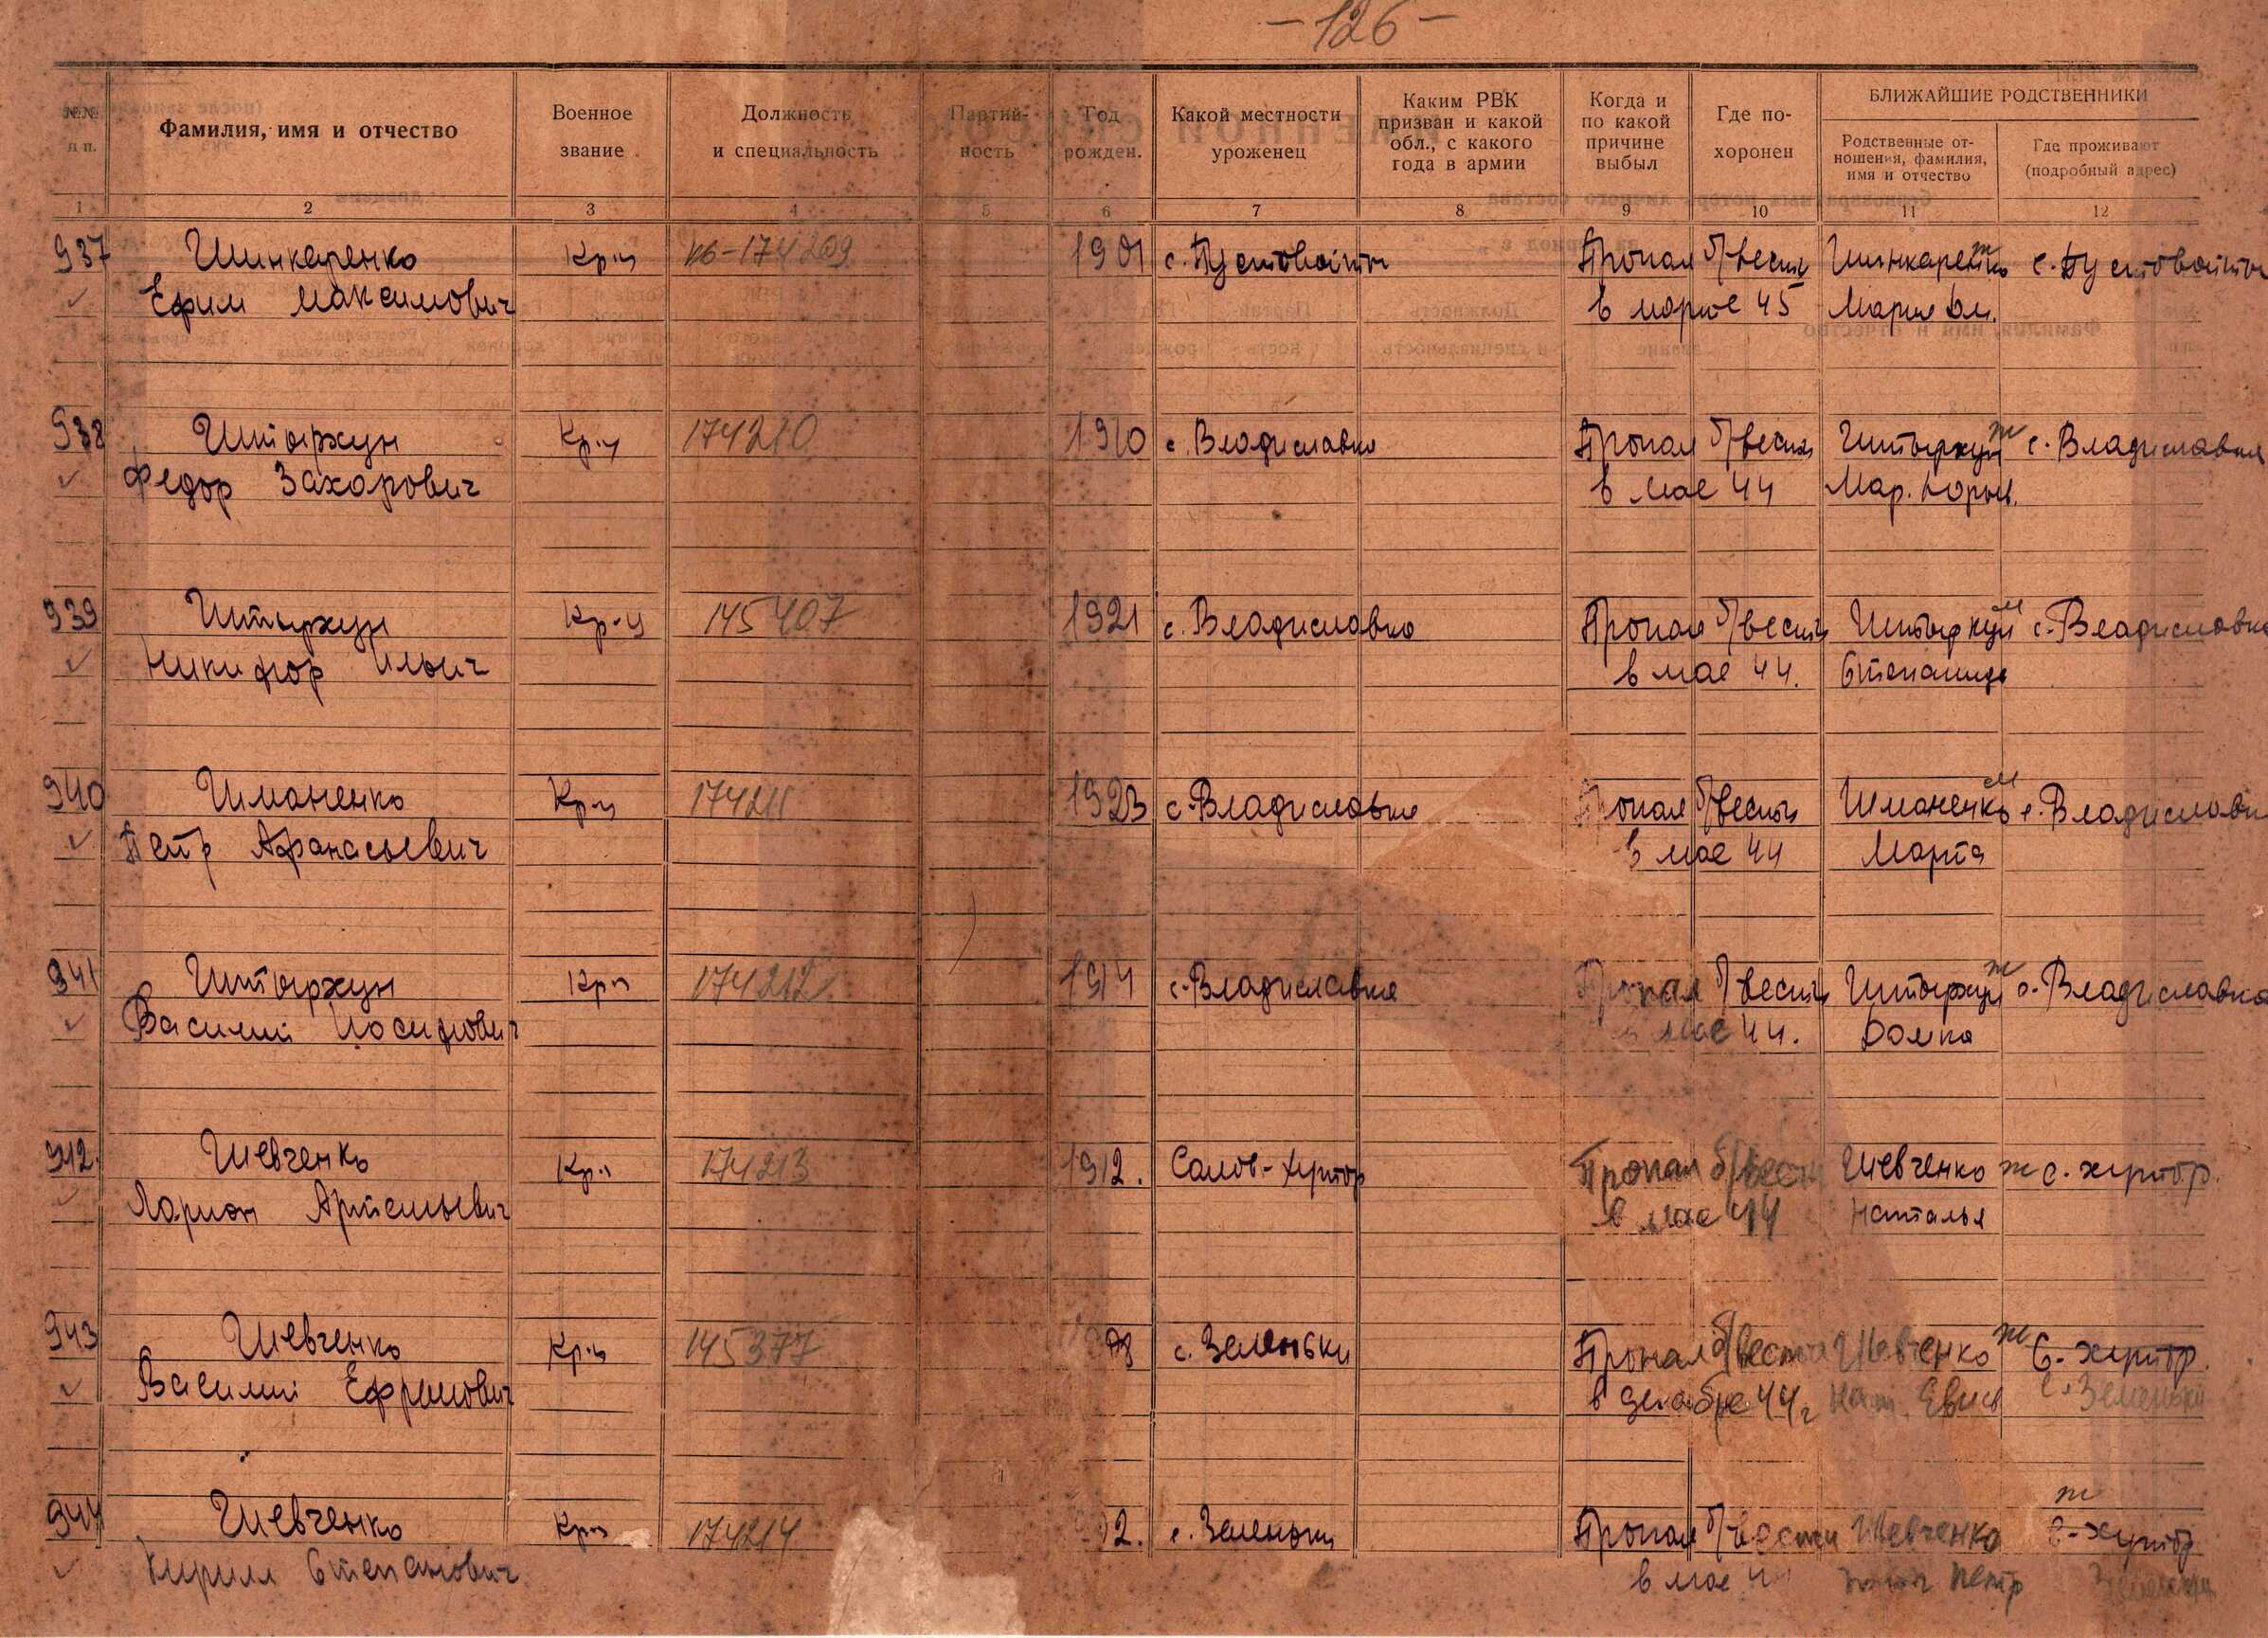 - 126 -
№№ п п.
Фамилия, имя и отчество
Военное звание
Должность и специальность
Партий- ность
Год рожден.
Какой местности уроженец
Каким РВК призван и какой обл., с какого года в армии
Когда и по какой причине выбыл
Где по- хоронен
БЛИЖАЙШИЕ РОДСТВЕННИКИ
Родственные от- ношения, фамилия, имя и отчество
Где проживают (подробный адрес)
1 2 3 4 5 6 7 8 9 10 11 12
937 Шинкаренко Кр-ц 174209 1901 с. Пустовойты Пропал б/вести Шинкаренко ж с. Пустовойты
Ефим Максимович в марте 45 Мария
938 Штыркун Кр-ц 174210 1910 с. Владиславка Пропал б/вести Штыркун ж с. Владиславка
Федор Захарович в мае 44 Мар.
939 Штыркун Кр-ц 145407 1921 с. Владиславка Пропал б/вести Штыркун м с. Владиславка
Никифор Ильич в мае 44. Степанида
940 Шманенко Кр-ц 174211 1923 с. Владиславка Пропал б/вести Шманенко м с. Владиславка
Петр Афанасьевич в мае 44 Марта
941 Штыркун Кр-ц 174212 1914 с. Владиславка Пропал б/вести Штыркун ж с. Владиславка
Василий Иосифович в мае 44. Домка
942. Шевченко Кр-ц 174213 1912. Салов-хутор Пропал б/вести Шевченко ж с. хутор.
Ларион Артемьевич в мае 44 Наталья
943 Шевченко Кр-ц 145377 с. Зеленьки Пропал б/вести Шевченко ж С-хутор.
Василий Ефимович в декабре 44г с. Зеленьки
944 Шевченко Кр-ц 174214 2. с. Зеленьки Пропал б/вести Шевченко ж С-хутор
Кирилл Степанович в мае Петр